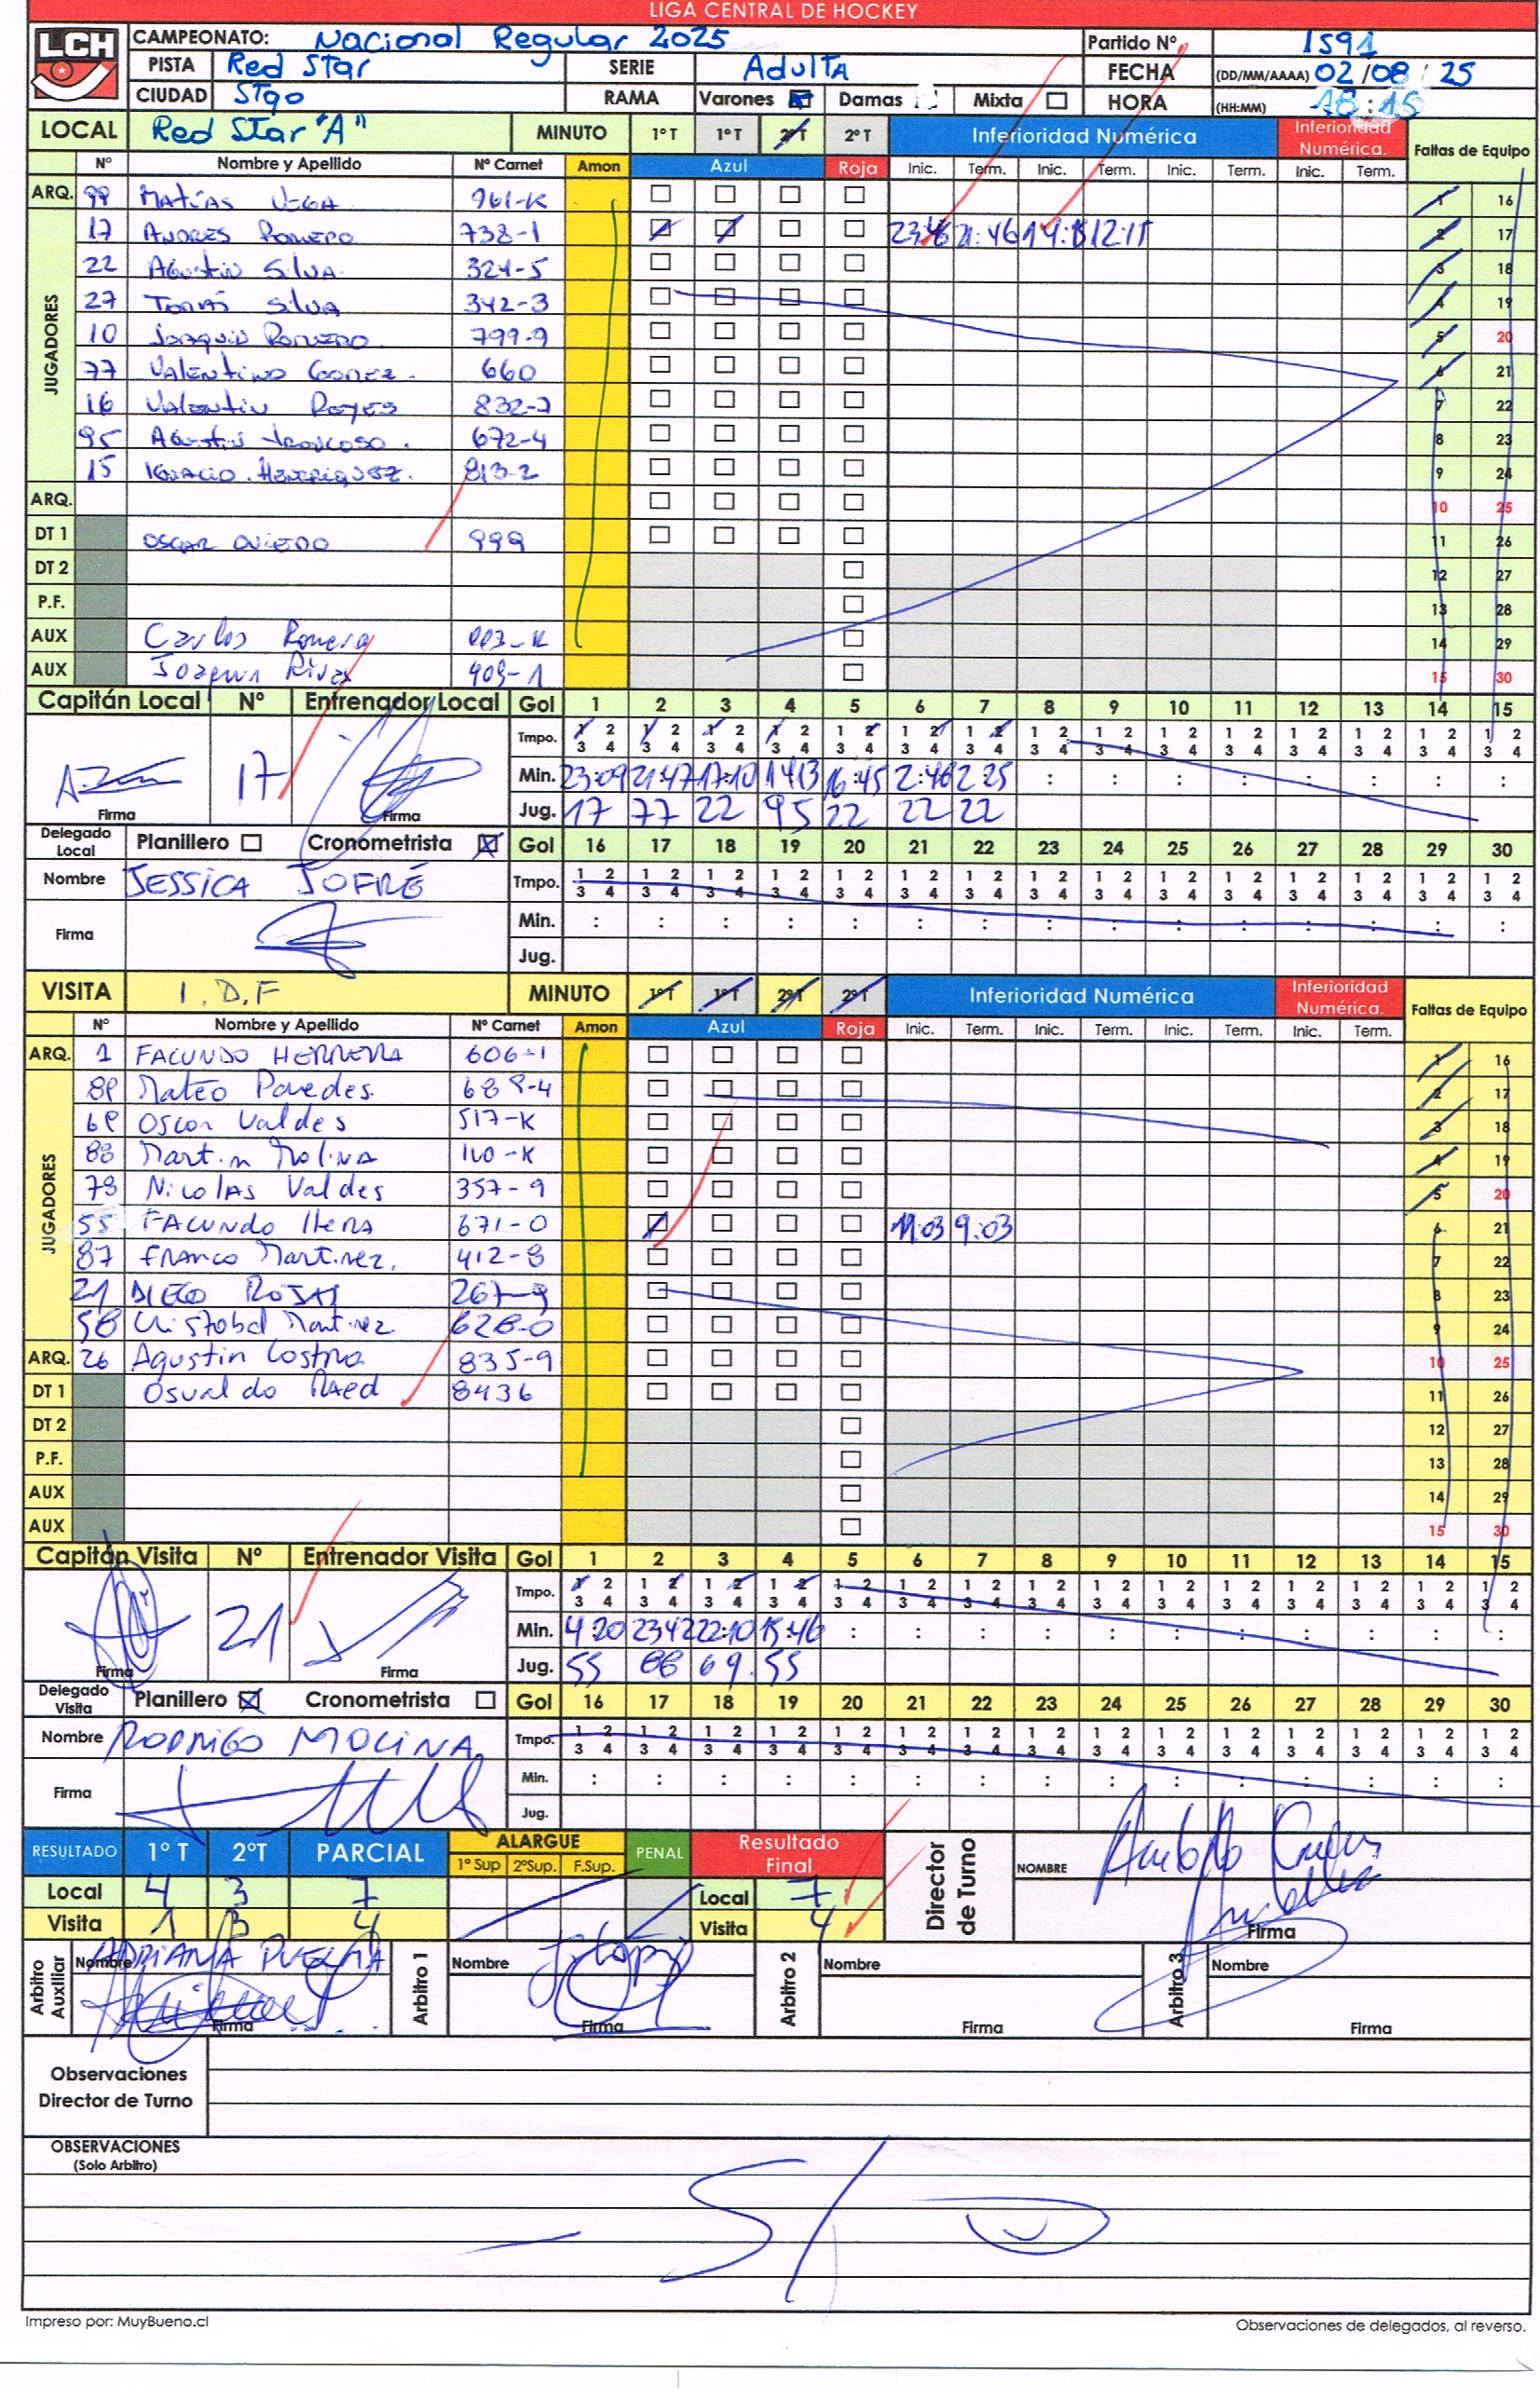 LIGA CENTRAL DE HOCKEY
LCH
CAMPEONATO: Nacional Regular 2025 Partido Nº 1591
PISTA Red Star SERIE Adulta FECHA (DD/MM/AAAA) 02/08/25
CIUDAD STgo RAMA Varones Damas Mixta HORA (HH:MM) 18:15
LOCAL Red Star "A" MINUTO 1º T 1º T 2º T 2º T Inferioridad Numérica Inferioridad Numérica. Faltas de Equipo
Nº Nombre y Apellido Nº Carnet Amon Azul Roja Inic. Term. Inic. Term. Inic. Term. Inic. Term.
ARQ. 99 Matías Vega 961-K 1 16
JUGADORES
17 Andres Romero 738-1 21:46 12:15 2 17
22 Agustin Silva 324-5 3 18
27 Tomás Silva 342-3 4 19
10 Joaquin Romero 799-9 5 20
77 Valentino Gomez. 660 6 21
16 Valentin Reyes 832-7 7 22
95 Agustin Troncoso. 672-4 8 23
15 Ignacio. Henriquez. 813-2 9 24
ARQ. 10 25
DT 1 Oscar Oviedo 999 11 26
DT 2 12 27
P.F. 13 28
AUX Carlos Romero 14 29
AUX Joaquin Rivas 409-1 15 30
Capitán Local Nº Entrenador Local Gol 1 2 3 4 5 6 7 8 9 10 11 12 13 14 15
17
Tmpo. 1 2 3 4 1 2 3 4 1 2 3 4 1 2 3 4 1 2 3 4 1 2 3 4 1 2 3 4 1 2 3 4 1 2 3 4 1 2 3 4 1 2 3 4 1 2 3 4 1 2 3 4 1 2 3 4 1 2 3 4
Min. 23:09 21:47 17:10 14:13 16:45 2:46 2:25 : : : : : : : :
Firma Firma Jug. 17 77 22 95 22 22 22
Delegado Local Planillero Cronometrista Gol 16 17 18 19 20 21 22 23 24 25 26 27 28 29 30
Nombre JESSICA JOFRÉ Tmpo. 1 2 3 4 1 2 3 4 1 2 3 4 1 2 3 4 1 2 3 4 1 2 3 4 1 2 3 4 1 2 3 4 1 2 3 4 1 2 3 4 1 2 3 4 1 2 3 4 1 2 3 4 1 2 3 4 1 2 3 4
Firma Min. : : : : : : : : : : : : : : :
Jug.
VISITA I.D.F MINUTO 1º T 1º T 2º T 2º T Inferioridad Numérica Inferioridad Numérica. Faltas de Equipo
Nº Nombre y Apellido Nº Carnet Amon Azul Roja Inic. Term. Inic. Term. Inic. Term. Inic. Term.
ARQ. 1 FACUNDO HERRERA 606-1 1 16
JUGADORES
Mateo Paredes. 689-4 2 17
Oscar Valdes 517-K 3 18
88 Martin Molina 110-K 4 19
79 Nicolas Valdes 357-9 5 20
55 FACUNDO 671-0 11:03 9:03 6 21
87 Franco Martinez. 412-8 7 22
21 DIEGO ROJAS 267-9 8 23
58 Cristobal Martinez 628-0 9 24
ARQ. 26 Agustin Castro 835-9 10 25
DT 1 Osvaldo Raed 8436 11 26
DT 2 12 27
P.F. 13 28
AUX 14 29
AUX 15 30
Capitán Visita Nº Entrenador Visita Gol 1 2 3 4 5 6 7 8 9 10 11 12 13 14 15
21
Tmpo. 1 2 3 4 1 2 3 4 1 2 3 4 1 2 3 4 1 2 3 4 1 2 3 4 1 2 3 4 1 2 3 4 1 2 3 4 1 2 3 4 1 2 3 4 1 2 3 4 1 2 3 4 1 2 3 4 1 2 3 4
Min. 4:20 23:42 22:10 15:46 : : : : : : : : : : :
Firma Firma Jug. 55 88 69 55
Delegado Visita Planillero Cronometrista Gol 16 17 18 19 20 21 22 23 24 25 26 27 28 29 30
Nombre RODRIGO MOLINA Tmpo. 1 2 3 4 1 2 3 4 1 2 3 4 1 2 3 4 1 2 3 4 1 2 3 4 1 2 3 4 1 2 3 4 1 2 3 4 1 2 3 4 1 2 3 4 1 2 3 4 1 2 3 4 1 2 3 4 1 2 3 4
Firma Min. : : : : : : : : : : : : : : :
Jug.
RESULTADO 1º T 2ºT PARCIAL ALARGUE 1º Sup 2ºSup. F.Sup. PENAL Resultado Final Director de Turno NOMBRE
Local 4 3 7 Local 7
Visita 1 3 4 Visita 4 Firma
Arbitro Auxiliar Nombre ADRIANA PUELMA Arbitro 1 Nombre Arbitro 2 Nombre Arbitro 3 Nombre
Firma Firma Firma Firma
Observaciones
Director de Turno
OBSERVACIONES
(Solo Arbitro)
S/O
Impreso por: MuyBueno.cl Observaciones de delegados, al reverso.